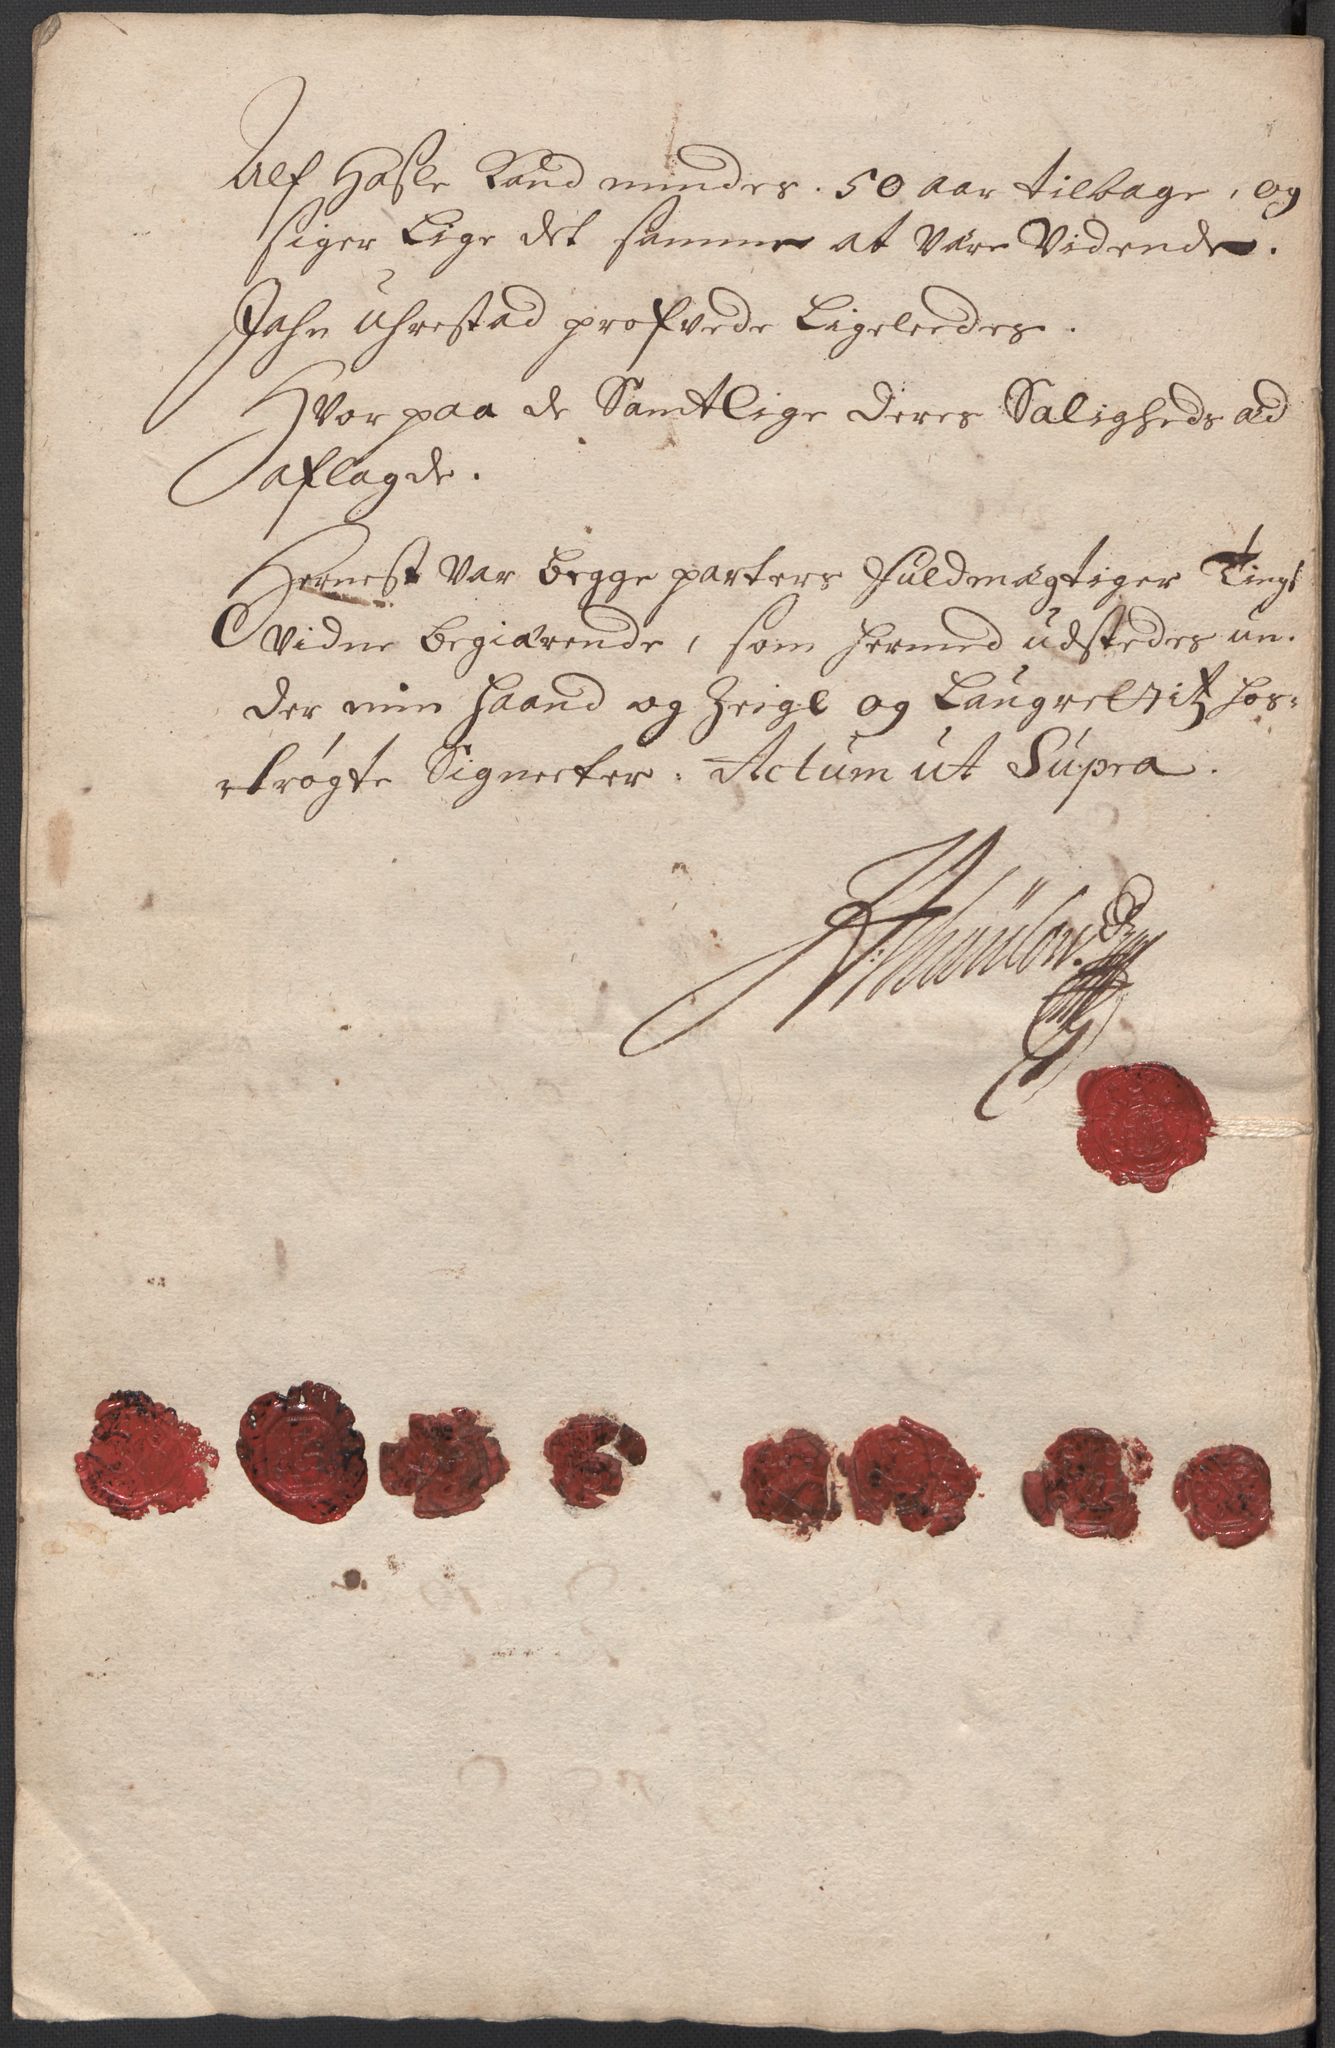 Alf Hasle Kand mindes. 50 aar tilbage, og
siger Lige det samme at være Vidende.
Jahn Uhrestad profvede Ligeleedes.
Hvorpaa de Samtlige deres Saligheds æd
aflagde.
Hernest var begge parters Fuldmægtiger Tings
Vidne begiærende, som hermed udstedes un-
der min Haand og Zeigl og Laugrettitz hos-
trøgte Signeter. Actum ut Supra.